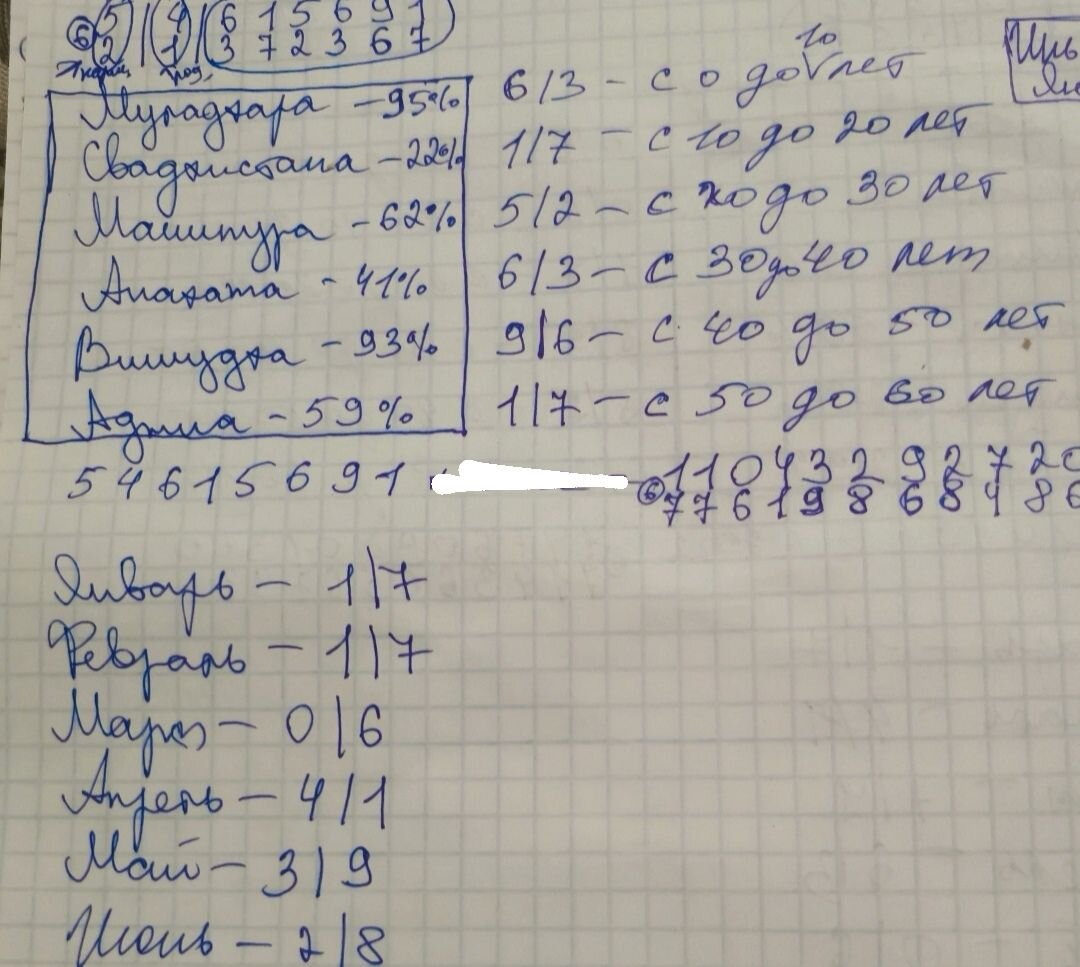 5 | 4 | 6 1 5 6 9 1
⑥ 2 | 1 | 3 7 2 3 6 7
Муладхара - 95%
Свадхистана - 22%
Манипура - 62%
Анахата - 41%
Вишудха - 93%
Аджна - 59%
6/3 - с 0 до 10 лет
1/7 - с 10 до 20 лет
5/2 - с 20 до 30 лет
6/3 - с 30 до 40 лет
9/6 - с 40 до 50 лет
1/7 - с 50 до 60 лет
5 4 6 1 5 6 9 1
1 1 0 4 3 2 9 2 7 2 0
⑥ 7 7 6 1 9 8 6 8 4 8 6
Январь - 1/7
Февраль - 1/7
Март - 0/6
Апрель - 4/1
Май - 3/9
Июнь - 2/8